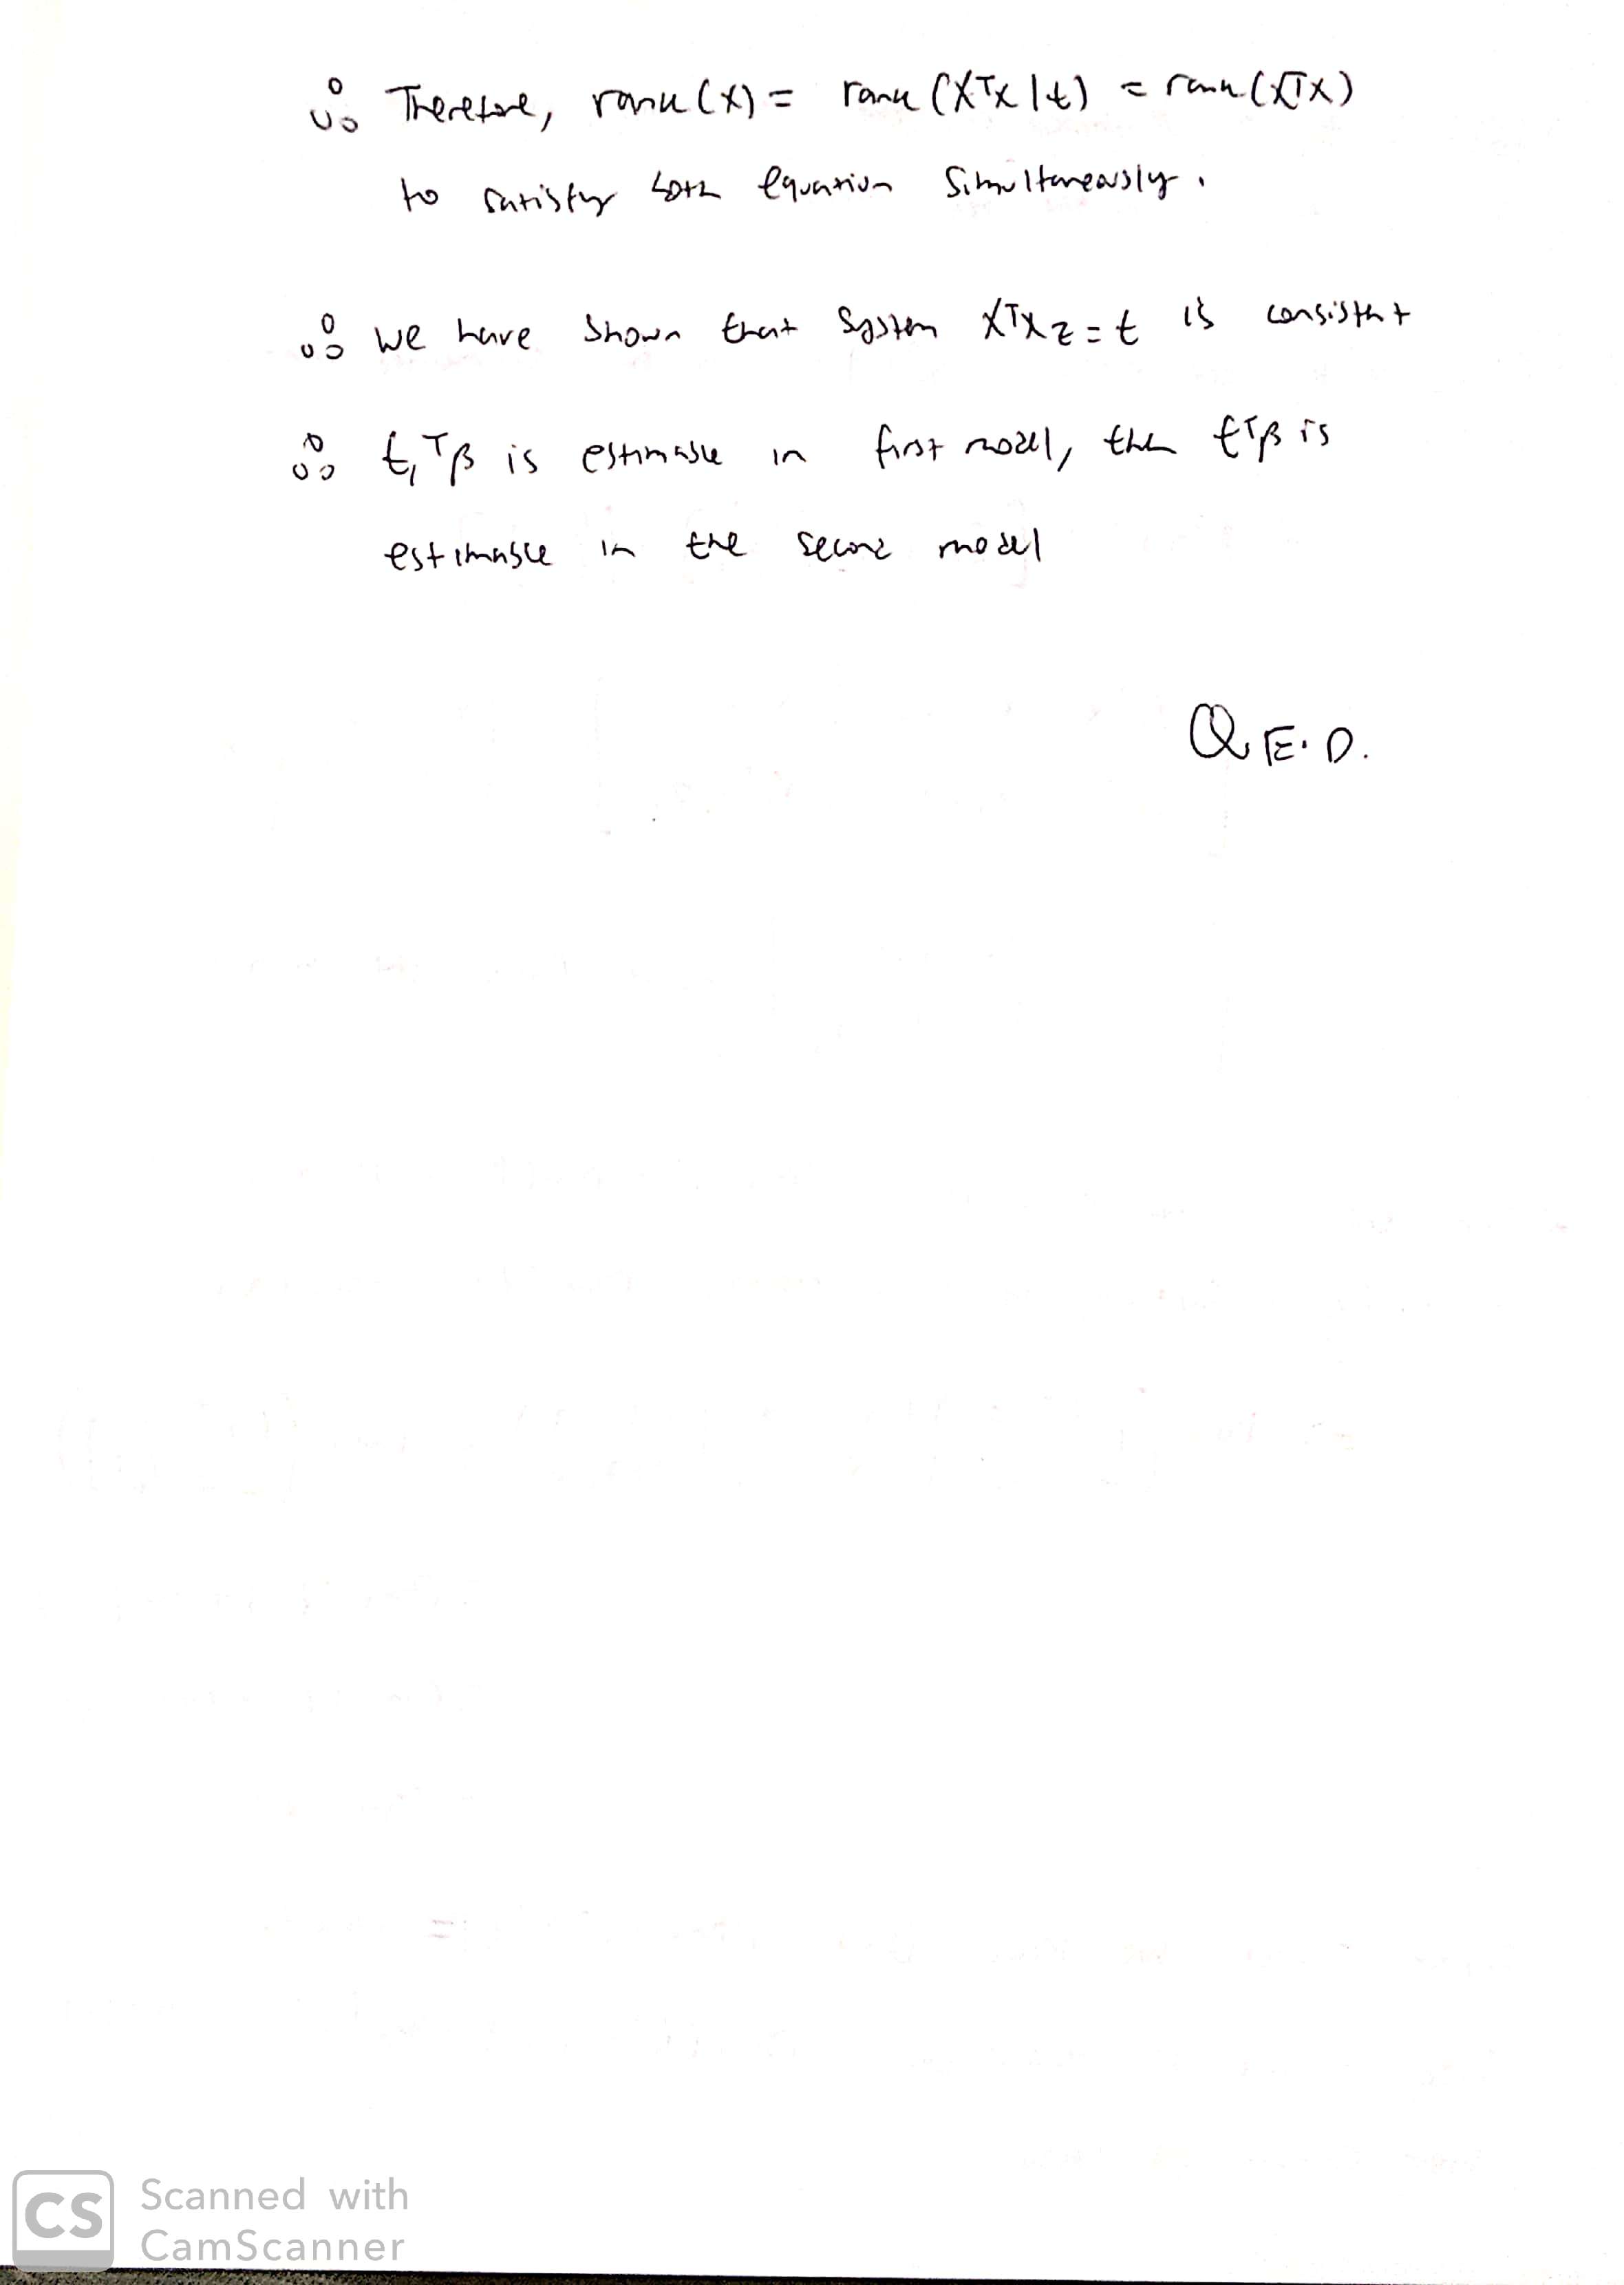 ∴ Therefore, rank (X) = rank (XᵀX | t) = rank (XᵀX)
to satisfy both equation simultaneously.
∴ we have shown that system XᵀX z = t is consistent
∴ t₁ᵀβ is estimable in first model, then tᵀβ is
estimable in the second model
Q.E.D.
CS Scanned with
CamScanner